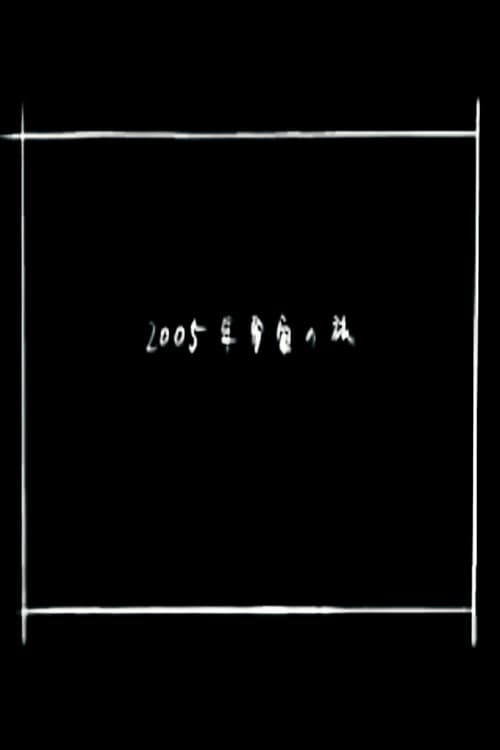 2005年宇宙の旅